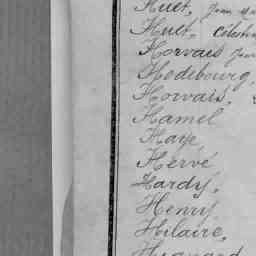 Huet, Jean
Huet, Célestin
Horvais
Hodebourg,
Horvais,
Hamel
Haye,
Hervé
Hardy,
Henry
Hilaire,
Huguard